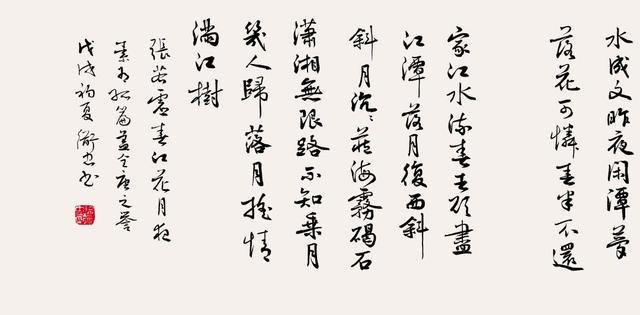 水成文昨夜闲潭夢
落花可憐春半不還
家江水流春去欲盡
江潭落月復西斜
斜月沉々藏海霧碣石
瀟湘無限路不知乘月
幾人歸落月搖情
滿江樹
張若虛春江花月夜
素有孤篇蓋全唐之譽
戊戌初夏